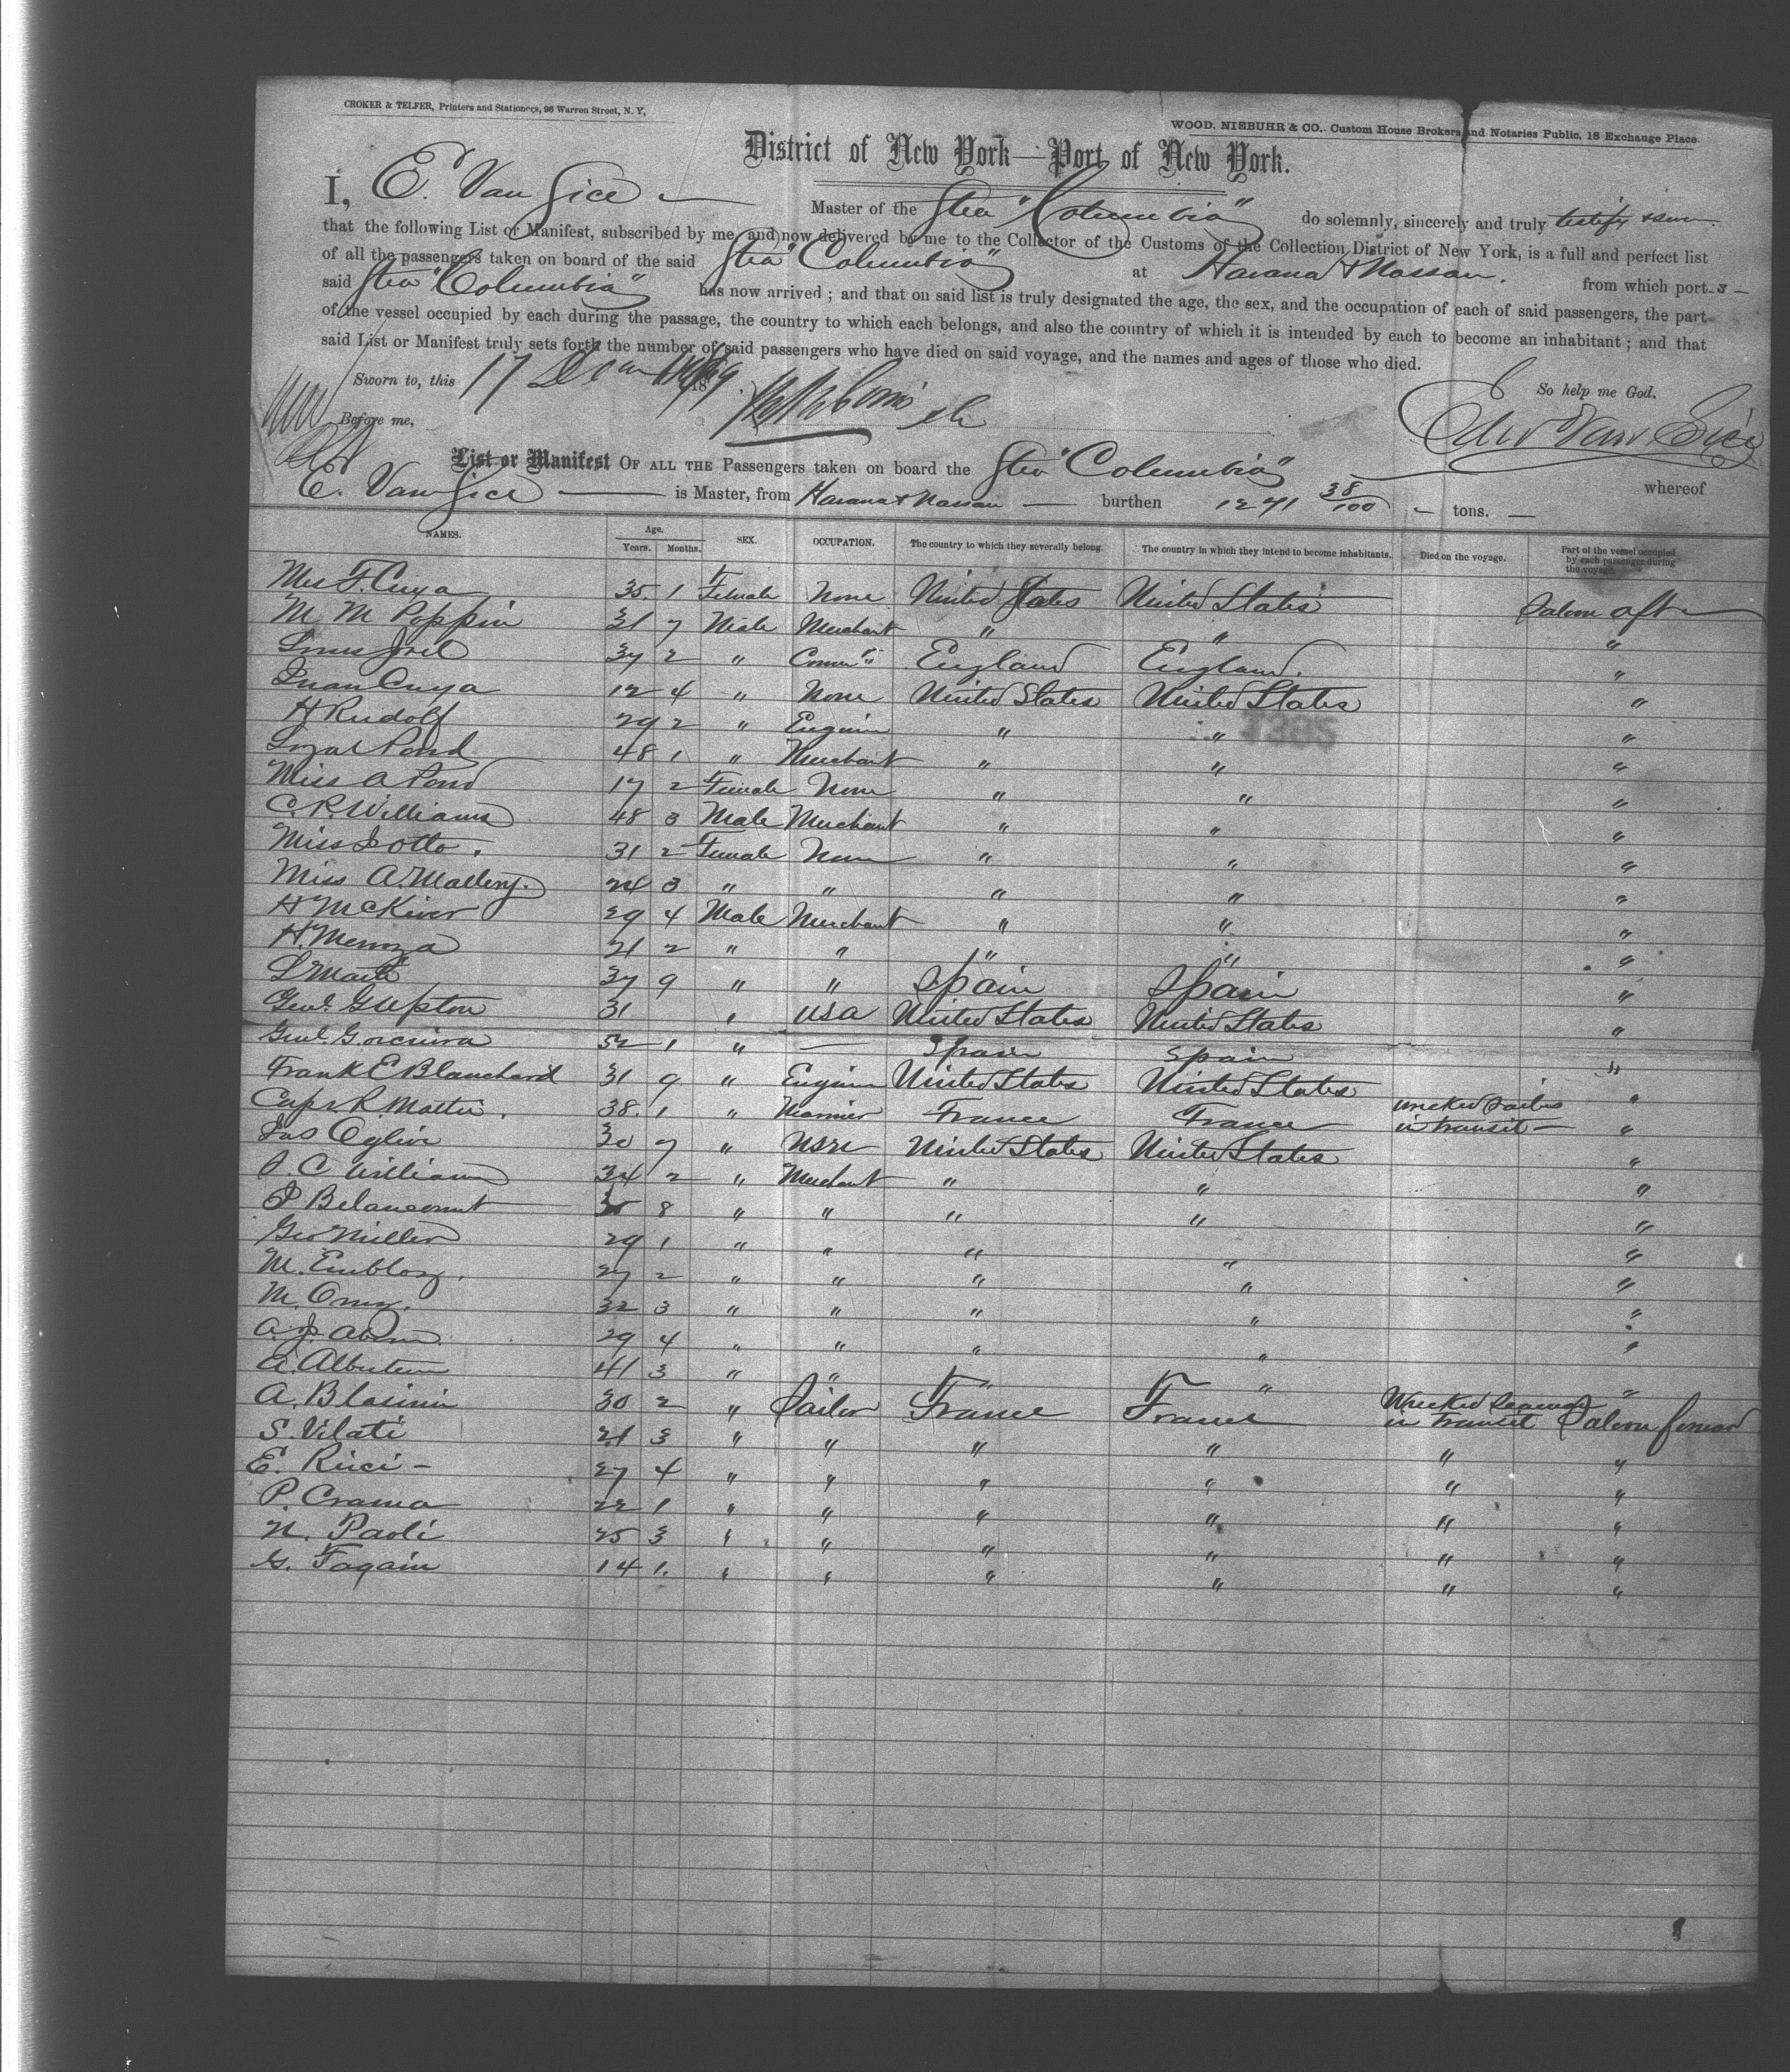 CROKER & TELFER, Printers and Stationers, 96 Warren Street, N. Y,
WOOD. NIEBUHR & CO., Custom House Brokers and Notaries Public, 18 Exchange Place.
District of New York—Port of New York.
I, E Van Sice Master of the Stea "Columbia" do solemnly, sincerely and truly testify
that the following List or Manifest, subscribed by me, and now delivered by me to the Collector of the Customs of the Collection District of New York, is a full and perfect list
of all the passengers taken on board of the said Stea "Columbia" at Havana & Nassau. from which port s
said Stea "Columbia" has now arrived ; and that on said list is truly designated the age, the sex, and the occupation of each of said passengers, the part
of the vessel occupied by each during the passage, the country to which each belongs, and also the country of which it is intended by each to become an inhabitant ; and that
said List or Manifest truly sets forth the number of said passengers who have died on said voyage, and the names and ages of those who died.
Sworn to, this 17 18 So help me God.
Before me, Edw Van Sice
List or Manifest OF ALL THE Passengers taken on board the Stea "Columbia" whereof
E. Van Sice is Master, from Havana & Nassau burthen 1271 38/100 tons.
NAMES. Age. Years. Months. SEX. OCCUPATION. The country to which they severally belong. The country in which they intend to become inhabitants. Died on the voyage. Part of the vessel occupied by each passenger during the voyage.
Mrs F. Cuya 35. 1 Female None United States United States Saloon aft
M. M Poppin 31 7 Male Merchant " " "
Joel 37 2 " England England. "
Juan Cuya 12 4 " None United States United States "
H Rudolf 29 2 " Engineer " " "
Pond 48 1 " Merchant " " "
Miss A Pond 17 2 Female None " " "
C. R. Williams 48 3 Male Merchant " " "
Miss 31 2 Female None " " "
Miss A. Mallery. 24 3 " " " " "
H McKiver 29 4 Male Merchant " " "
H. Menoza 21 2 " " " " "
37 9 " " Spain Spain "
Genl. G Upton 31 " USA United States United States "
Genl. G. 52 1 " — Spain Spain "
Frank E Blanchard 31 9 " Engineer United States United States "
Capt. R. Mattei. 38. 1 " France France wrecked in transit "
Jas Oglivi 30 7 " USN United States United States "
C William 34 2 " Merchant " " "
P Belancourt 8 " " " " "
Geo Miller 29 1 " " " " "
M. 27 2 " " " " "
M. 32 3 " " " " "
A. J. 29 4 " " " " "
A. 41 3 " " " " "
A. Blasini 30 2 " Sailor France France Wrecked Seamen in transit Saloon forward
S. Vilati 21 3 " " " " " "
E. Ricci 27 4 " " " " " "
P. Crama 22 1 " " " " " "
N. Paoli 25 3 " " " " " "
G. Fagain 14 1. " " " " " "